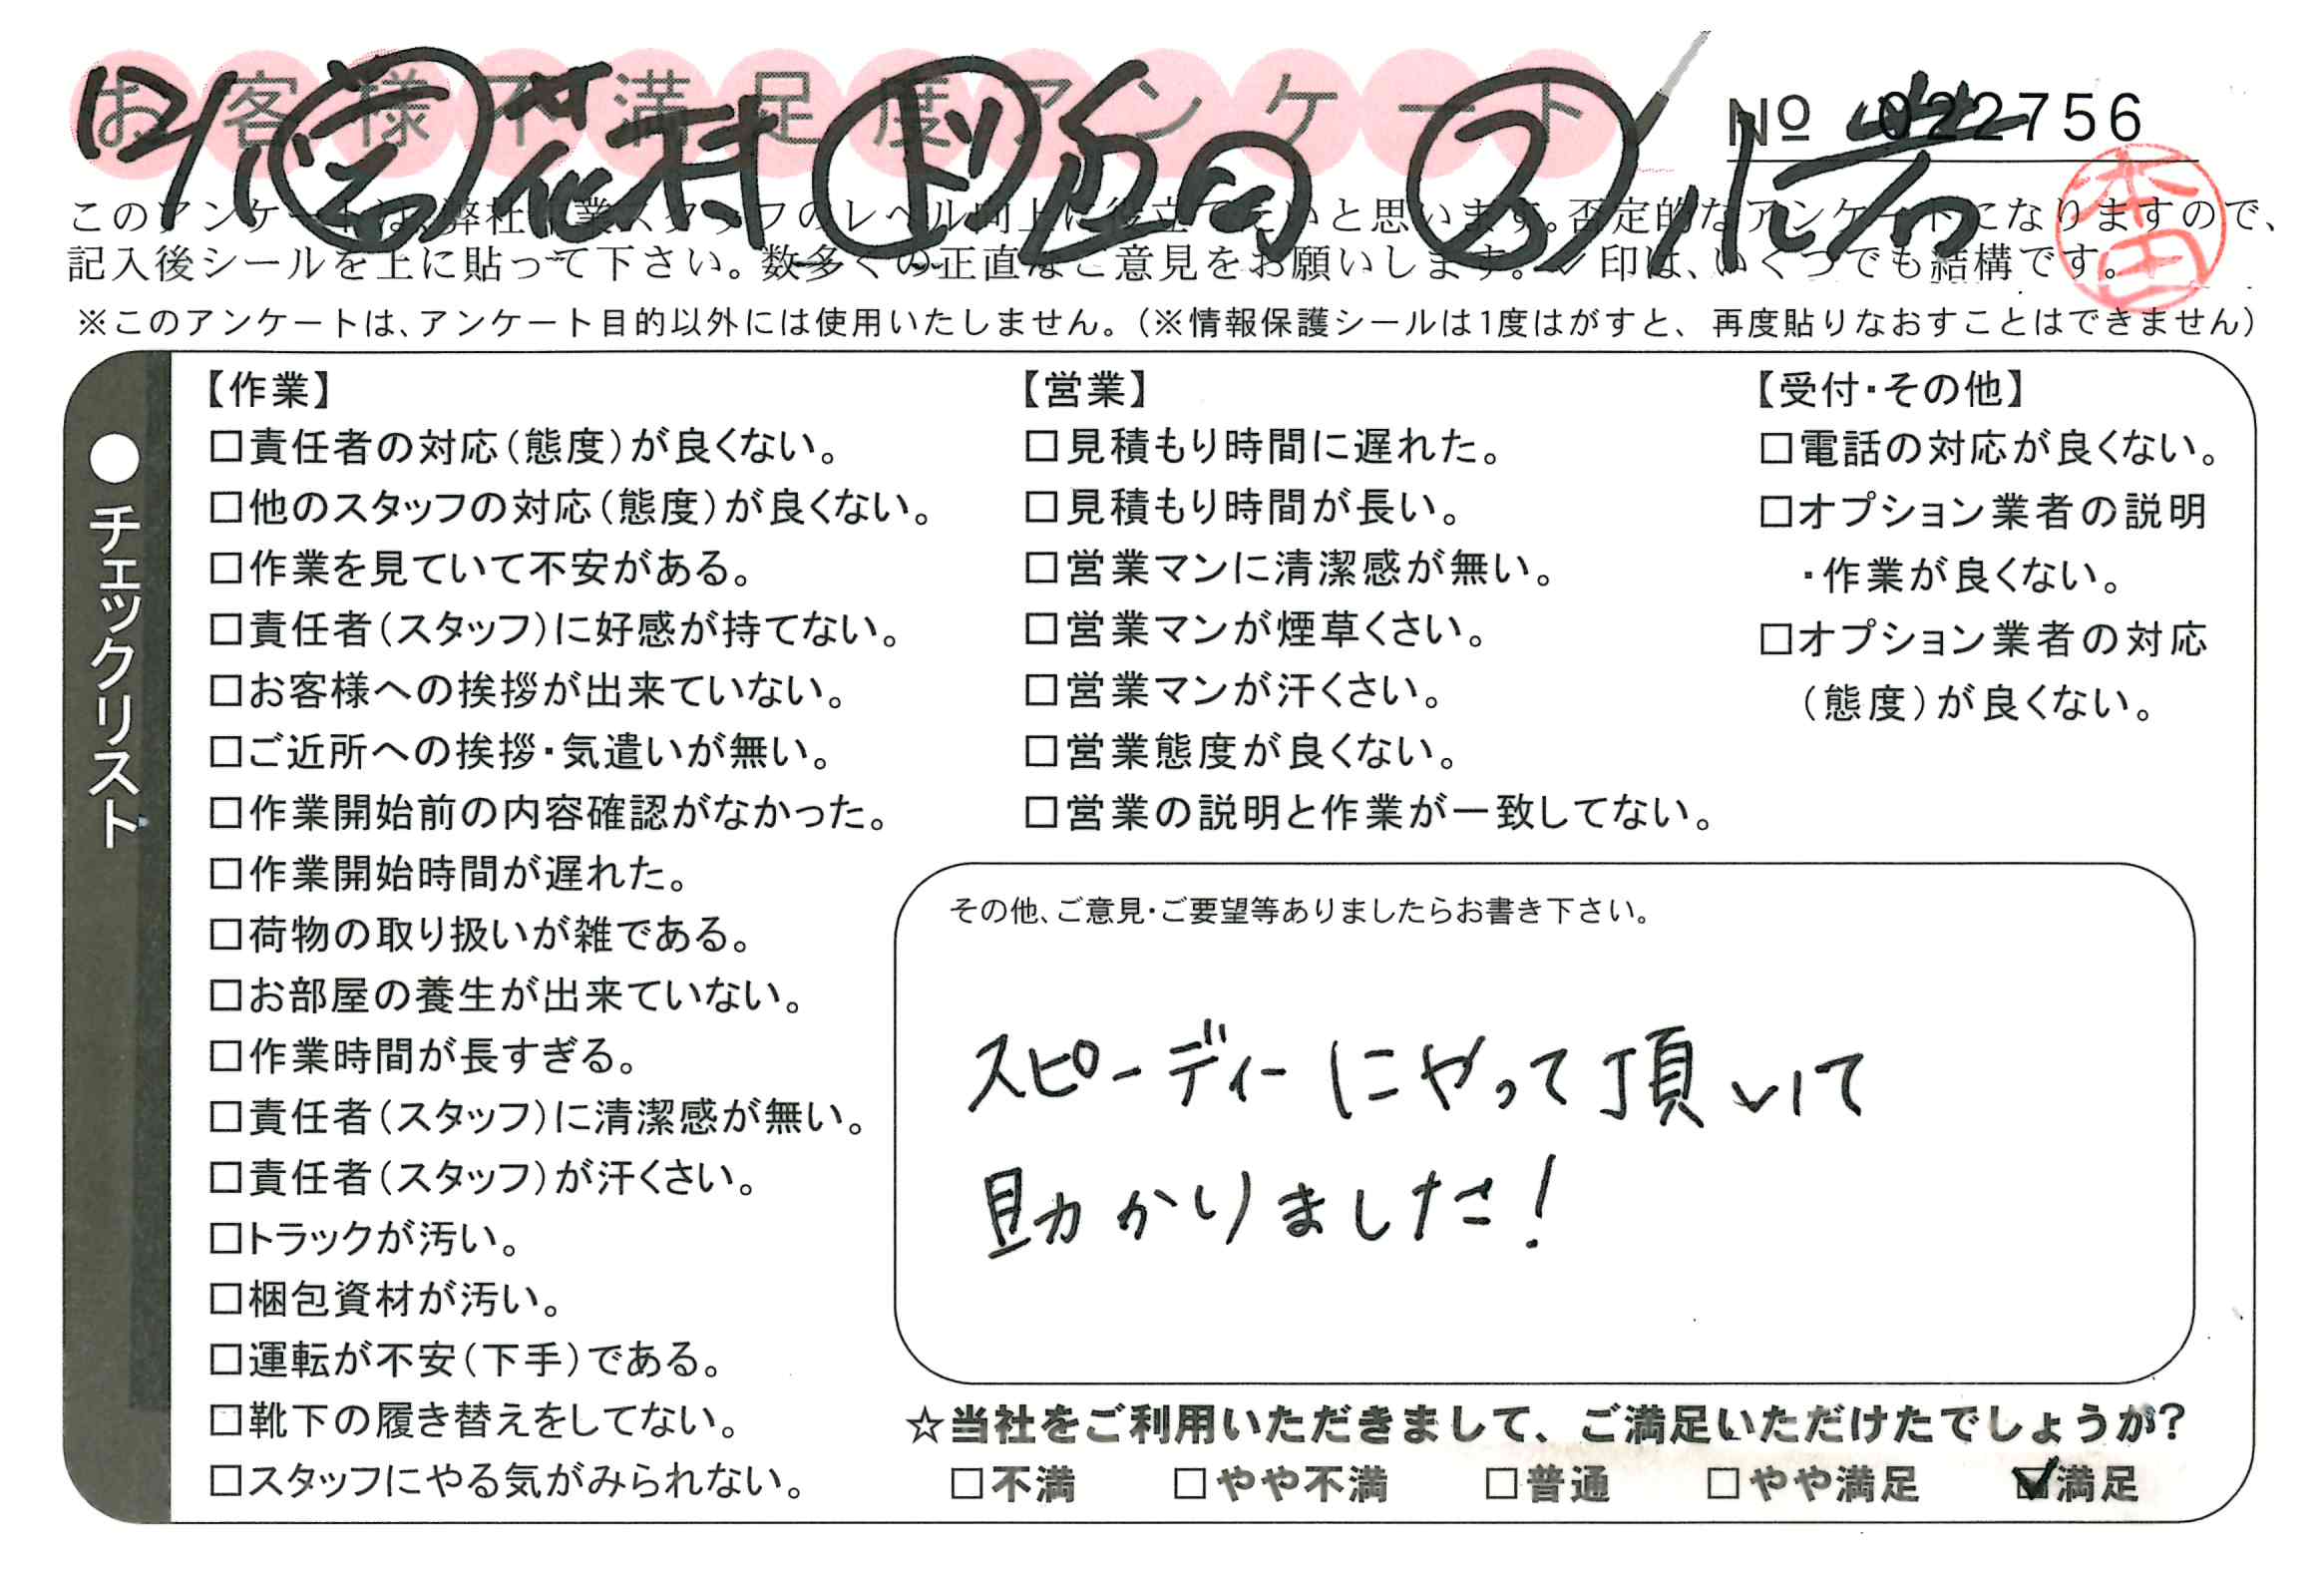 お客様不満足度アンケート
№ 022756
花村
本田
このアンケートは、弊社作業スタッフのレベル向上に役立てたいと思います。否定的なアンケートになりますので、
記入後シールを上に貼って下さい。数多くの正直なご意見をお願いします。✓印は、いくつでも結構です。
※このアンケートは、アンケート目的以外には使用いたしません。(※情報保護シールは1度はがすと、再度貼りなおすことはできません)
●チェックリスト
【作業】
□責任者の対応(態度)が良くない。
□他のスタッフの対応(態度)が良くない。
□作業を見ていて不安がある。
□責任者(スタッフ)に好感が持てない。
□お客様への挨拶が出来ていない。
□ご近所への挨拶・気遣いが無い。
□作業開始前の内容確認がなかった。
□作業開始時間が遅れた。
□荷物の取り扱いが雑である。
□お部屋の養生が出来ていない。
□作業時間が長すぎる。
□責任者(スタッフ)に清潔感が無い。
□責任者(スタッフ)が汗くさい。
□トラックが汚い。
□梱包資材が汚い。
□運転が不安(下手)である。
□靴下の履き替えをしてない。
□スタッフにやる気がみられない。
【営業】
□見積もり時間に遅れた。
□見積もり時間が長い。
□営業マンに清潔感が無い。
□営業マンが煙草くさい。
□営業マンが汗くさい。
□営業態度が良くない。
□営業の説明と作業が一致してない。
【受付・その他】
□電話の対応が良くない。
□オプション業者の説明
・作業が良くない。
□オプション業者の対応
(態度)が良くない。
その他、ご意見・ご要望等ありましたらお書き下さい。
スピーディーにやって頂いて
助かりました!
☆当社をご利用いただきまして、ご満足いただけたでしょうか?
□不満 □やや不満 □普通 □やや満足 ☑満足